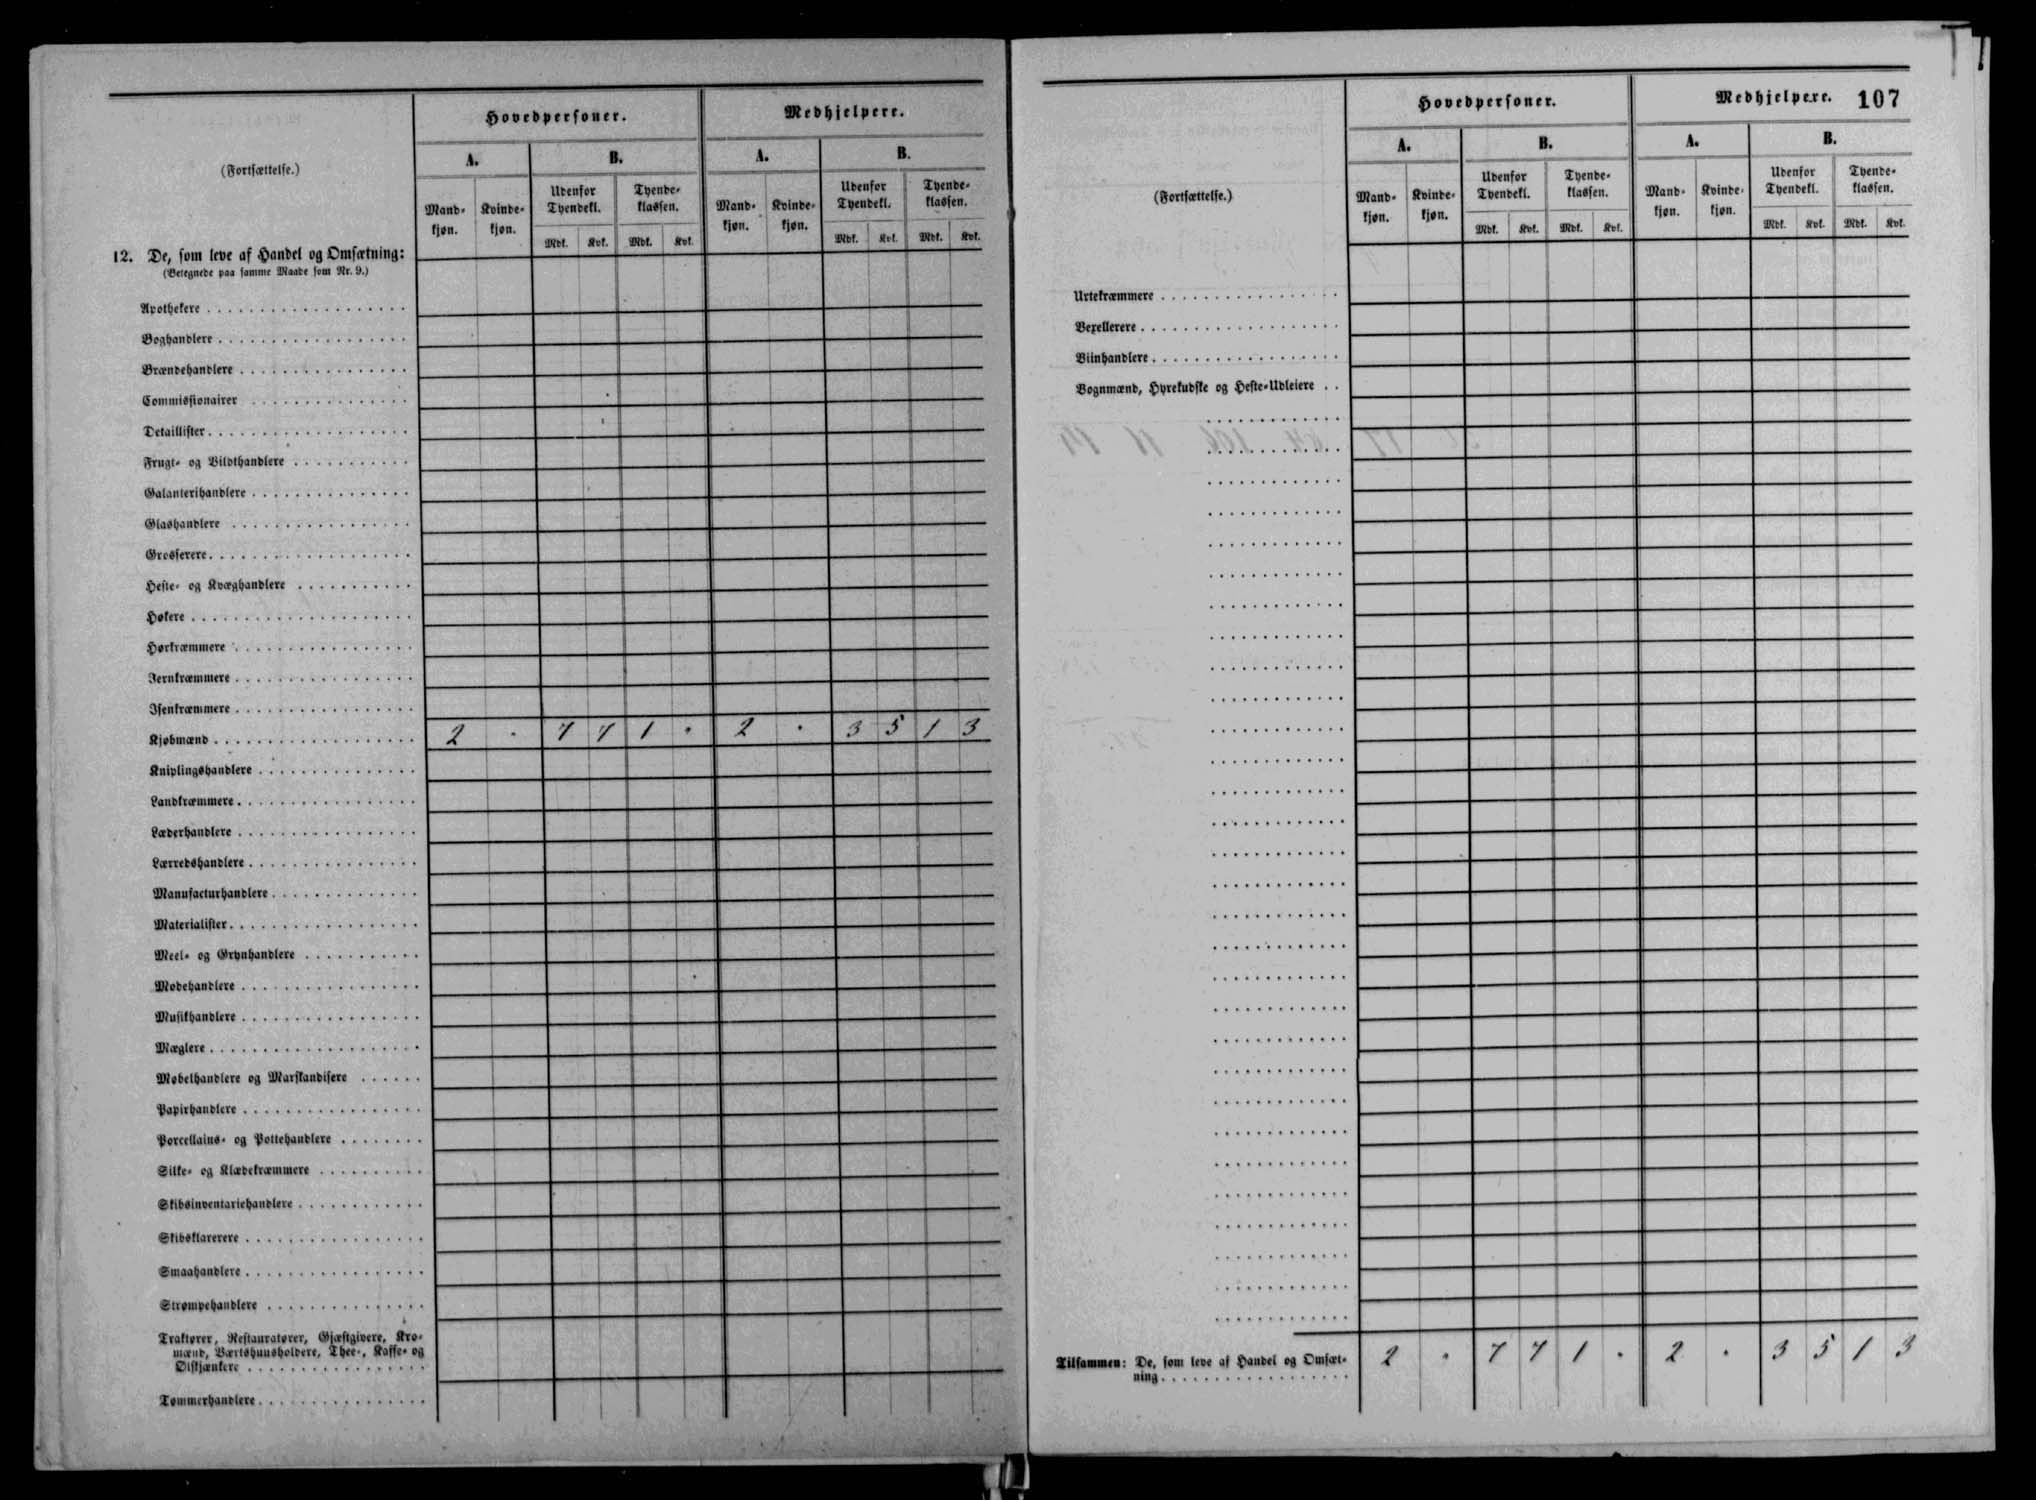 (Fortsættelse.)
Hovedpersoner. Medhjelpere.
A. B. A. B.
Udenfor Tyendekl. Tyende-klassen. Udenfor Tyendekl. Tyende-klassen.
Mand-kjøn. Kvinde-kjøn. Mdk. Kvk. Mdk. Kvk. Mand-kjøn. Kvinde-kjøn. Mdk. Kvk. Mdk. Kvk.
12. De, som leve af Handel og Omsætning:
(Betegnede paa samme Maade som Nr. 9.)
Apothekere
Boghandlere
Brændehandlere
Commissionairer
Detaillister
Frugt- og Vildthandlere
Galanterihandlere
Glashandlere
Grosserere
Heste- og Kvæghandlere
Høkere
Hørkræmmere
Jernkræmmere
Isenkræmmere
Kjøbmænd 2 " 7 7 1 " 2 " 3 5 1 3
Kniplingshandlere
Landkræmmere
Læderhandlere
Lærredshandlere
Manufacturhandlere
Materialister
Meel- og Grynhandlere
Modehandlere
Musikhandlere
Mæglere
Møbelhandlere og Marskandisere
Papirhandlere
Porcellains- og Pottehandlere
Silke- og Klædekræmmere
Skibsinventariehandlere
Skibsklarerere
Smaahandlere
Strømpehandlere
Traktører, Restauratører, Gjæstgivere, Kro-
mænd, Værtshuusholdere, Thee-, Kaffe- og
Ølskjænkere
Tømmerhandlere
107
(Fortsættelse.)
Hovedpersoner. Medhjelpere.
A. B. A. B.
Udenfor Tyendekl. Tyende-klassen. Udenfor Tyendekl. Tyende-klassen.
Mand-kjøn. Kvinde-kjøn. Mdk. Kvk. Mdk. Kvk. Mand-kjøn. Kvinde-kjøn. Mdk. Kvk. Mdk. Kvk.
Urtekræmmere
Vexellerere
Viinhandlere
Vognmænd, Hyrekudske og Heste-Udleiere
Tilsammen: De, som leve af Handel og Omsæt-
ning 2 " 7 7 1 " 2 " 3 5 1 3